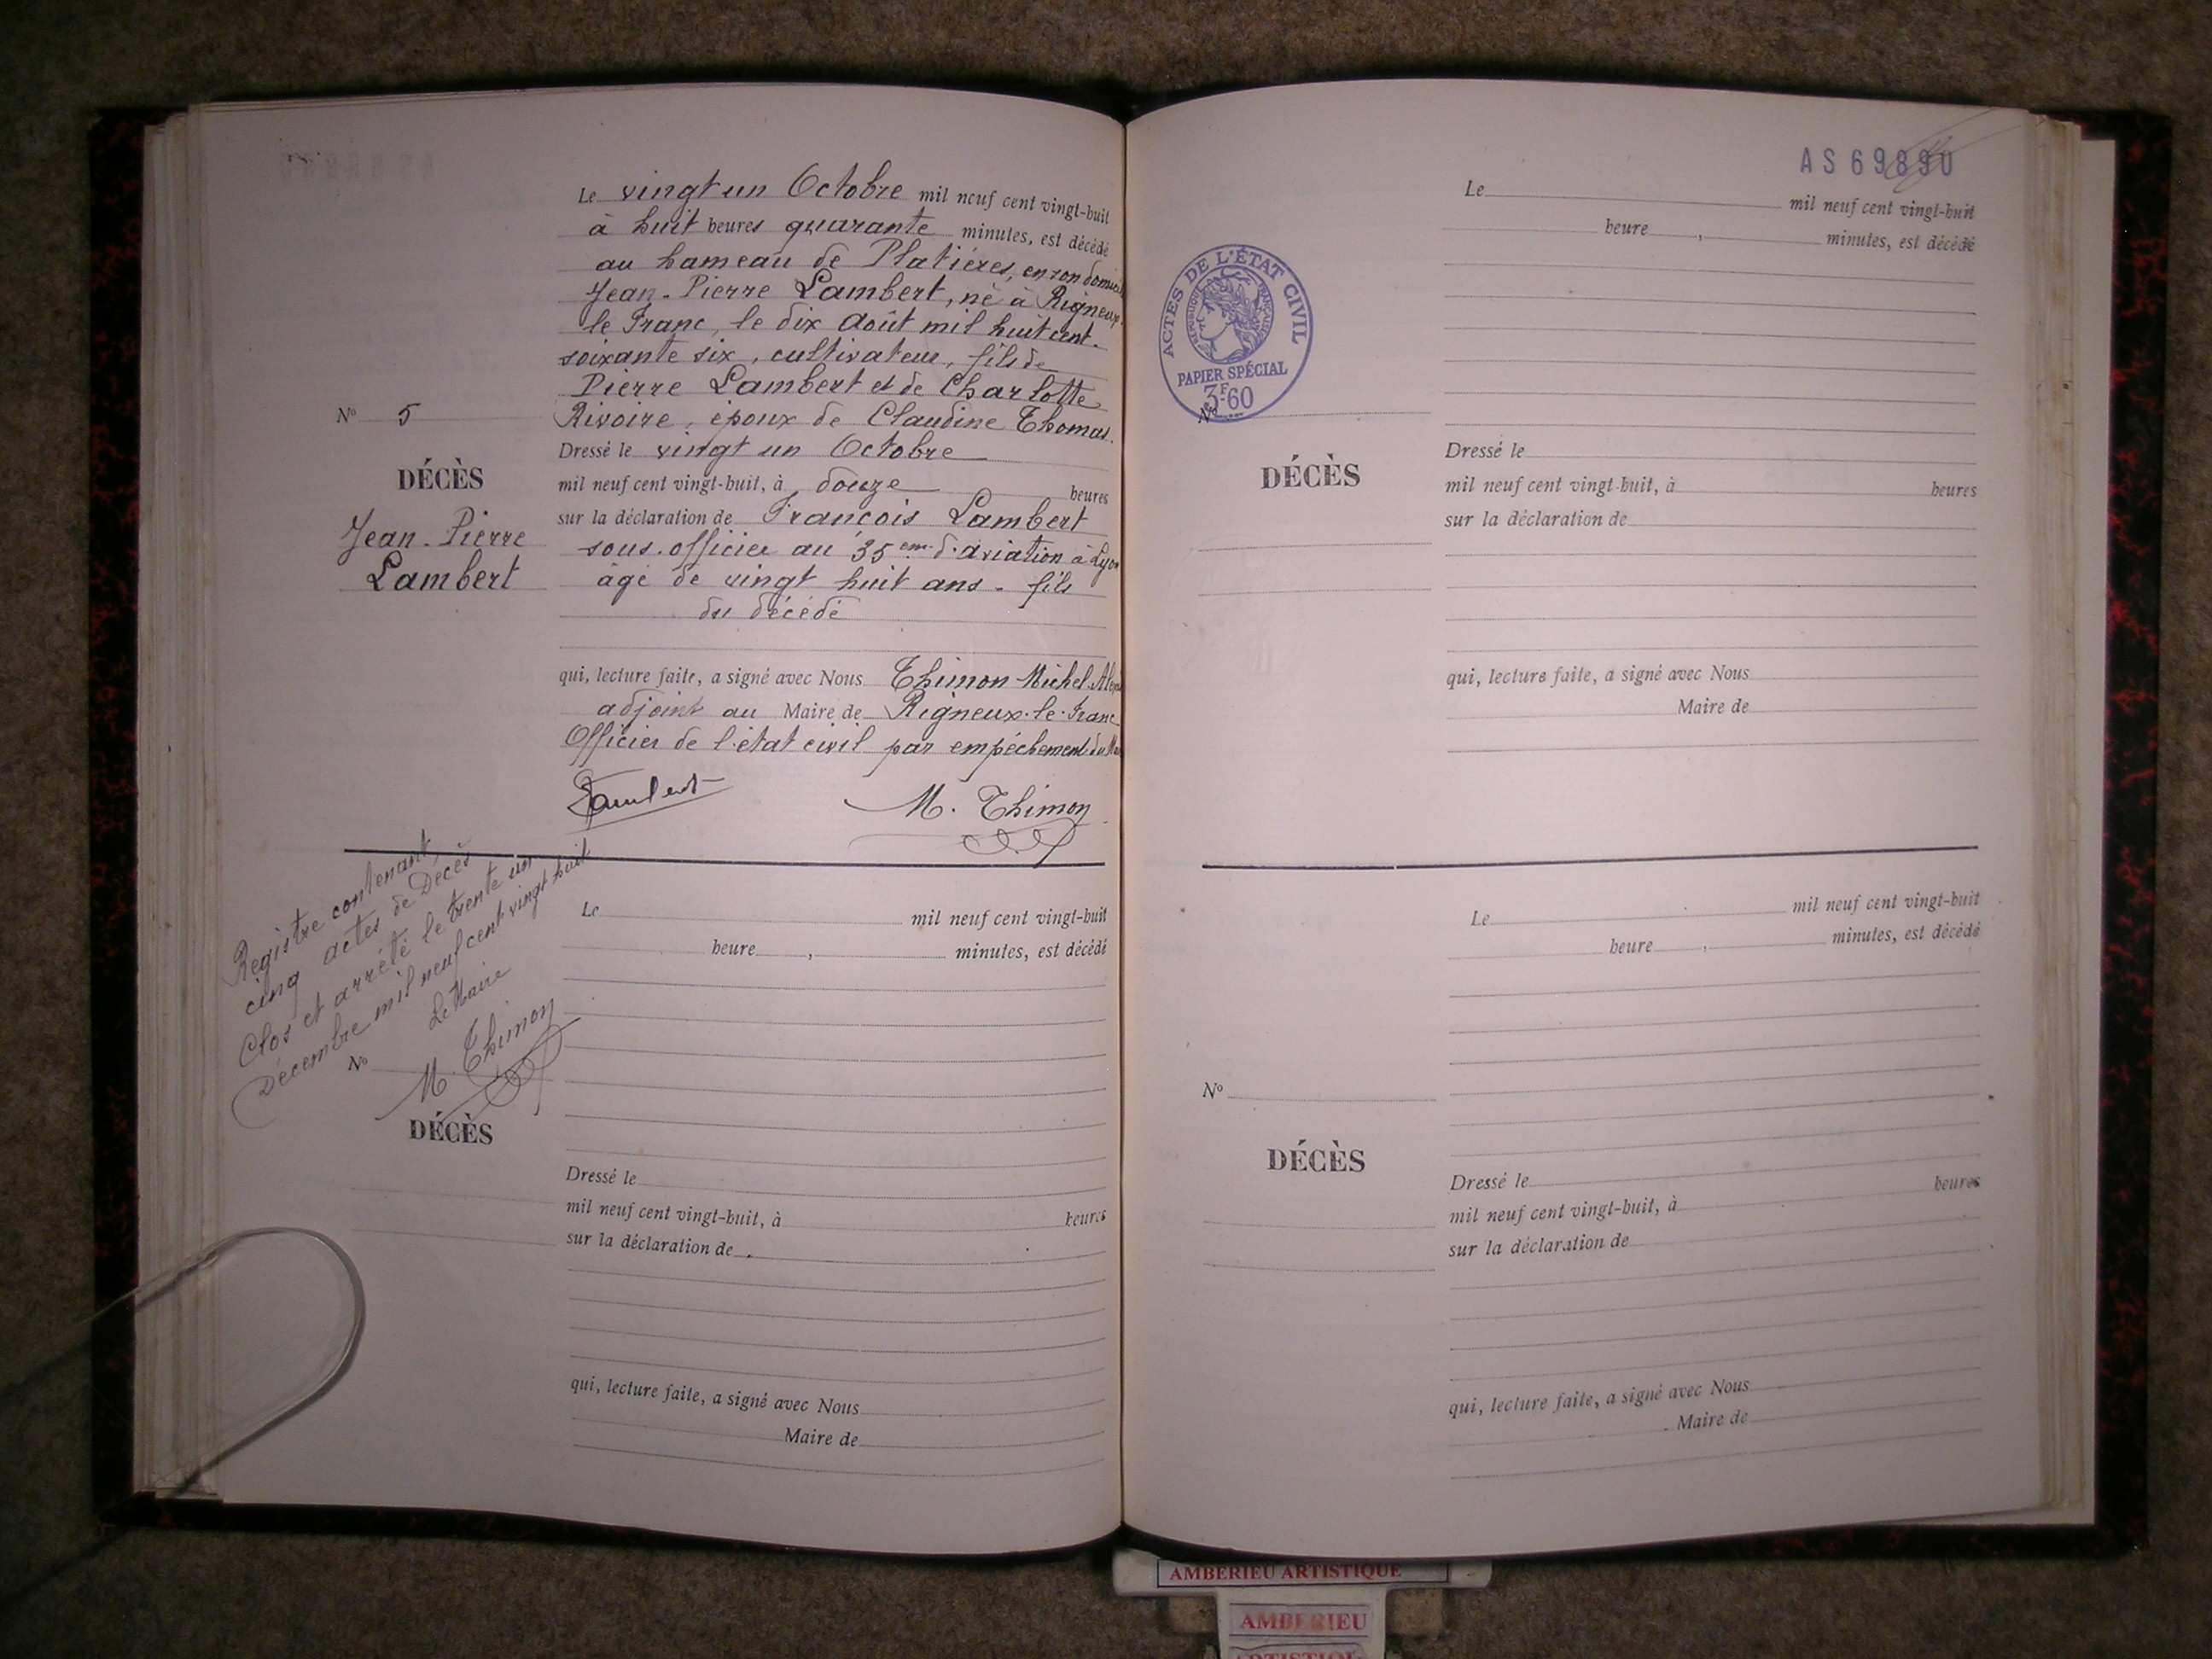 Le vingt un Octobre mil neuf cent vingt-huit
à huit heures quarante minutes, est décédé
au hameau de Platières, en son domicil
Jean-Pierre Lambert, né à Rigneux-
le Franc, le dix Août mil huit cent-
soixante six, cultivateur, fils de
Pierre Lambert et de Charlotte
Rivoire, époux de Claudine Thomas.
Nº 5
DÉCÈS
Jean-Pierre
Lambert
Dressé le vingt un Octobre
mil neuf cent vingt-huit, à douze heures
sur la déclaration de François Lambert
sous-officier au 35em d'aviation à Lyon
âgé de vingt huit ans - fils
du décédé
qui, lecture faite, a signé avec Nous Thimon Michel
adjoint au Maire de Rigneux-le-Franc
Officier de l'état civil par empêchement du
Lambert
M. Thimon
Registre contenant
cinq actes de Décès
Clos et arrêté le trente un
Décembre mil neuf cent vingt huit
Le Maire
M. Thimon
Le mil neuf cent vingt-huit
heure , minutes, est décédé
Nº
DÉCÈS
Dressé le
mil neuf cent vingt-huit, à heures
sur la déclaration de
qui, lecture faite, a signé avec Nous
Maire de
AS 69890
Le mil neuf cent vingt-huit
heure , minutes, est décédé
ACTES DE L'ÉTAT CIVIL
RÉPUBLIQUE FRANÇAISE
PAPIER SPÉCIAL
3F60
Nº
DÉCÈS
Dressé le
mil neuf cent vingt-huit, à heures
sur la déclaration de
qui, lecture faite, a signé avec Nous
Maire de
Le mil neuf cent vingt-huit
heure , minutes, est décédé
Nº
DÉCÈS
Dressé le
mil neuf cent vingt-huit, à heures
sur la déclaration de
qui, lecture faite, a signé avec Nous
Maire de
AMBERIEU ARTISTIQUE
AMBERIEU
ARTISTIQUE